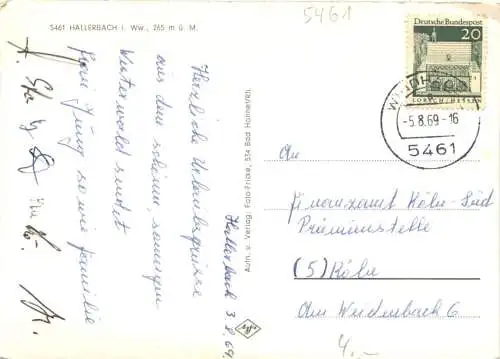 5461 HALLERBACH i. Ww., 265 m ü. M.
5461
Deutsche Bundespost
20
LORSCH/HESSEN
-5.8.69-16
5461
Hallerbach 3.8.69
Herzliche Urlaubsgrüsse
aus dem schönen, sonnigen
Westerwald sendet
Jung sowie Familie
Aufn. u. Verlag Foto-Fricke, 534 Bad Honnef/Rh.
An
Finanzamt Köln-Süd
Prämienstelle
(5) Köln
Am Weidenbach 6
4,-